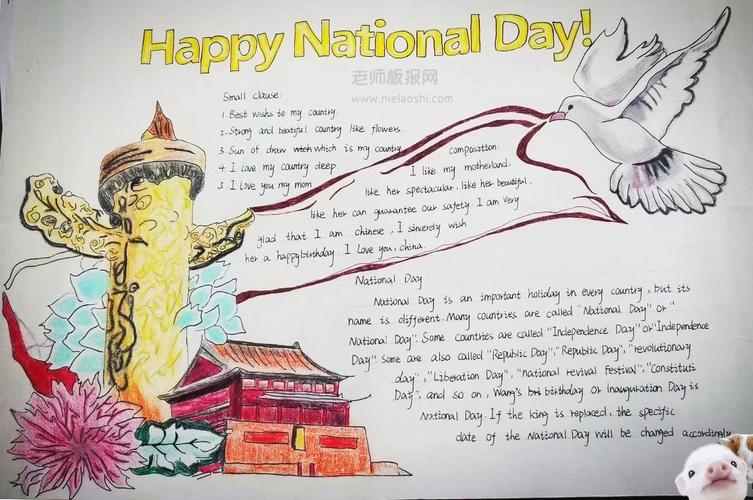 Happy National Day!
老师板报网
www.nielaoshi.com
Small clause:
1. Best wishes to my country.
2. Strong and beatiful country like flowers.
3. Sun of draw which is my country
4. I love my country deep.
5. I love you my mom
composition:
I like my motherland.
like her spectacular, like her beautiful,
like her can guarantee our safety. I am very
glad that I am chinese, I sincerely wish
her a happybirthday. I love you, china.
National Day:
National Day is an important holiday in every country, but its
name is different. Many countries are called "National Day" or "
National Day". Some countries are called "Independence Day" or "Independence
Day". Some are also called "Republic Day", "Republic Day", "revolutionary
day", "Liberation Day", "national revival festival", "Constituti
Day". and so on, Wang's birthday or Inauguration Day is
National Day. If the king is replaced, the specific
date of the National Day will be changed accordingly